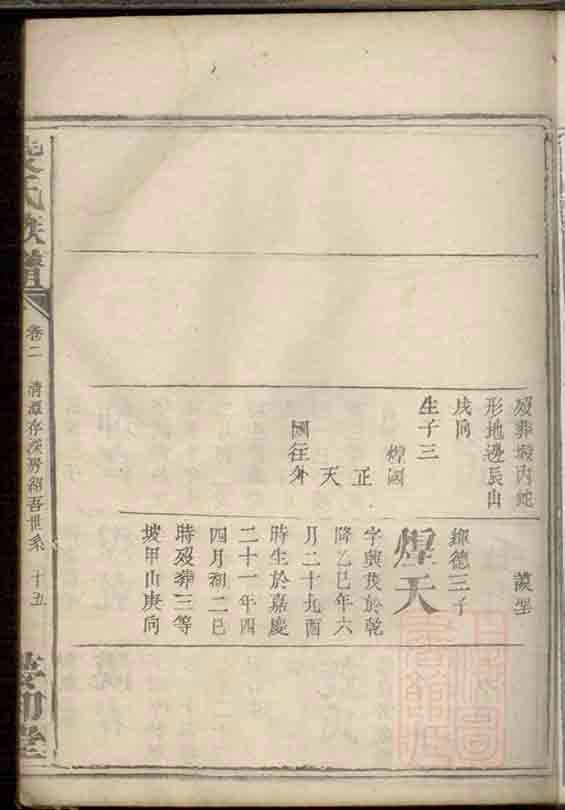 歿葬塅內蛇
形地邊辰山
戌向
生子三
正
天
國往外
輝德三子
煌天
字興茂於乾
隆乙巳年六
月二十九酉
時生於嘉慶
二十一年四
四月初二巳
時歿葬三等
坡甲山庚向
氏族譜
卷二
清潭存深房紹吾世系
十五